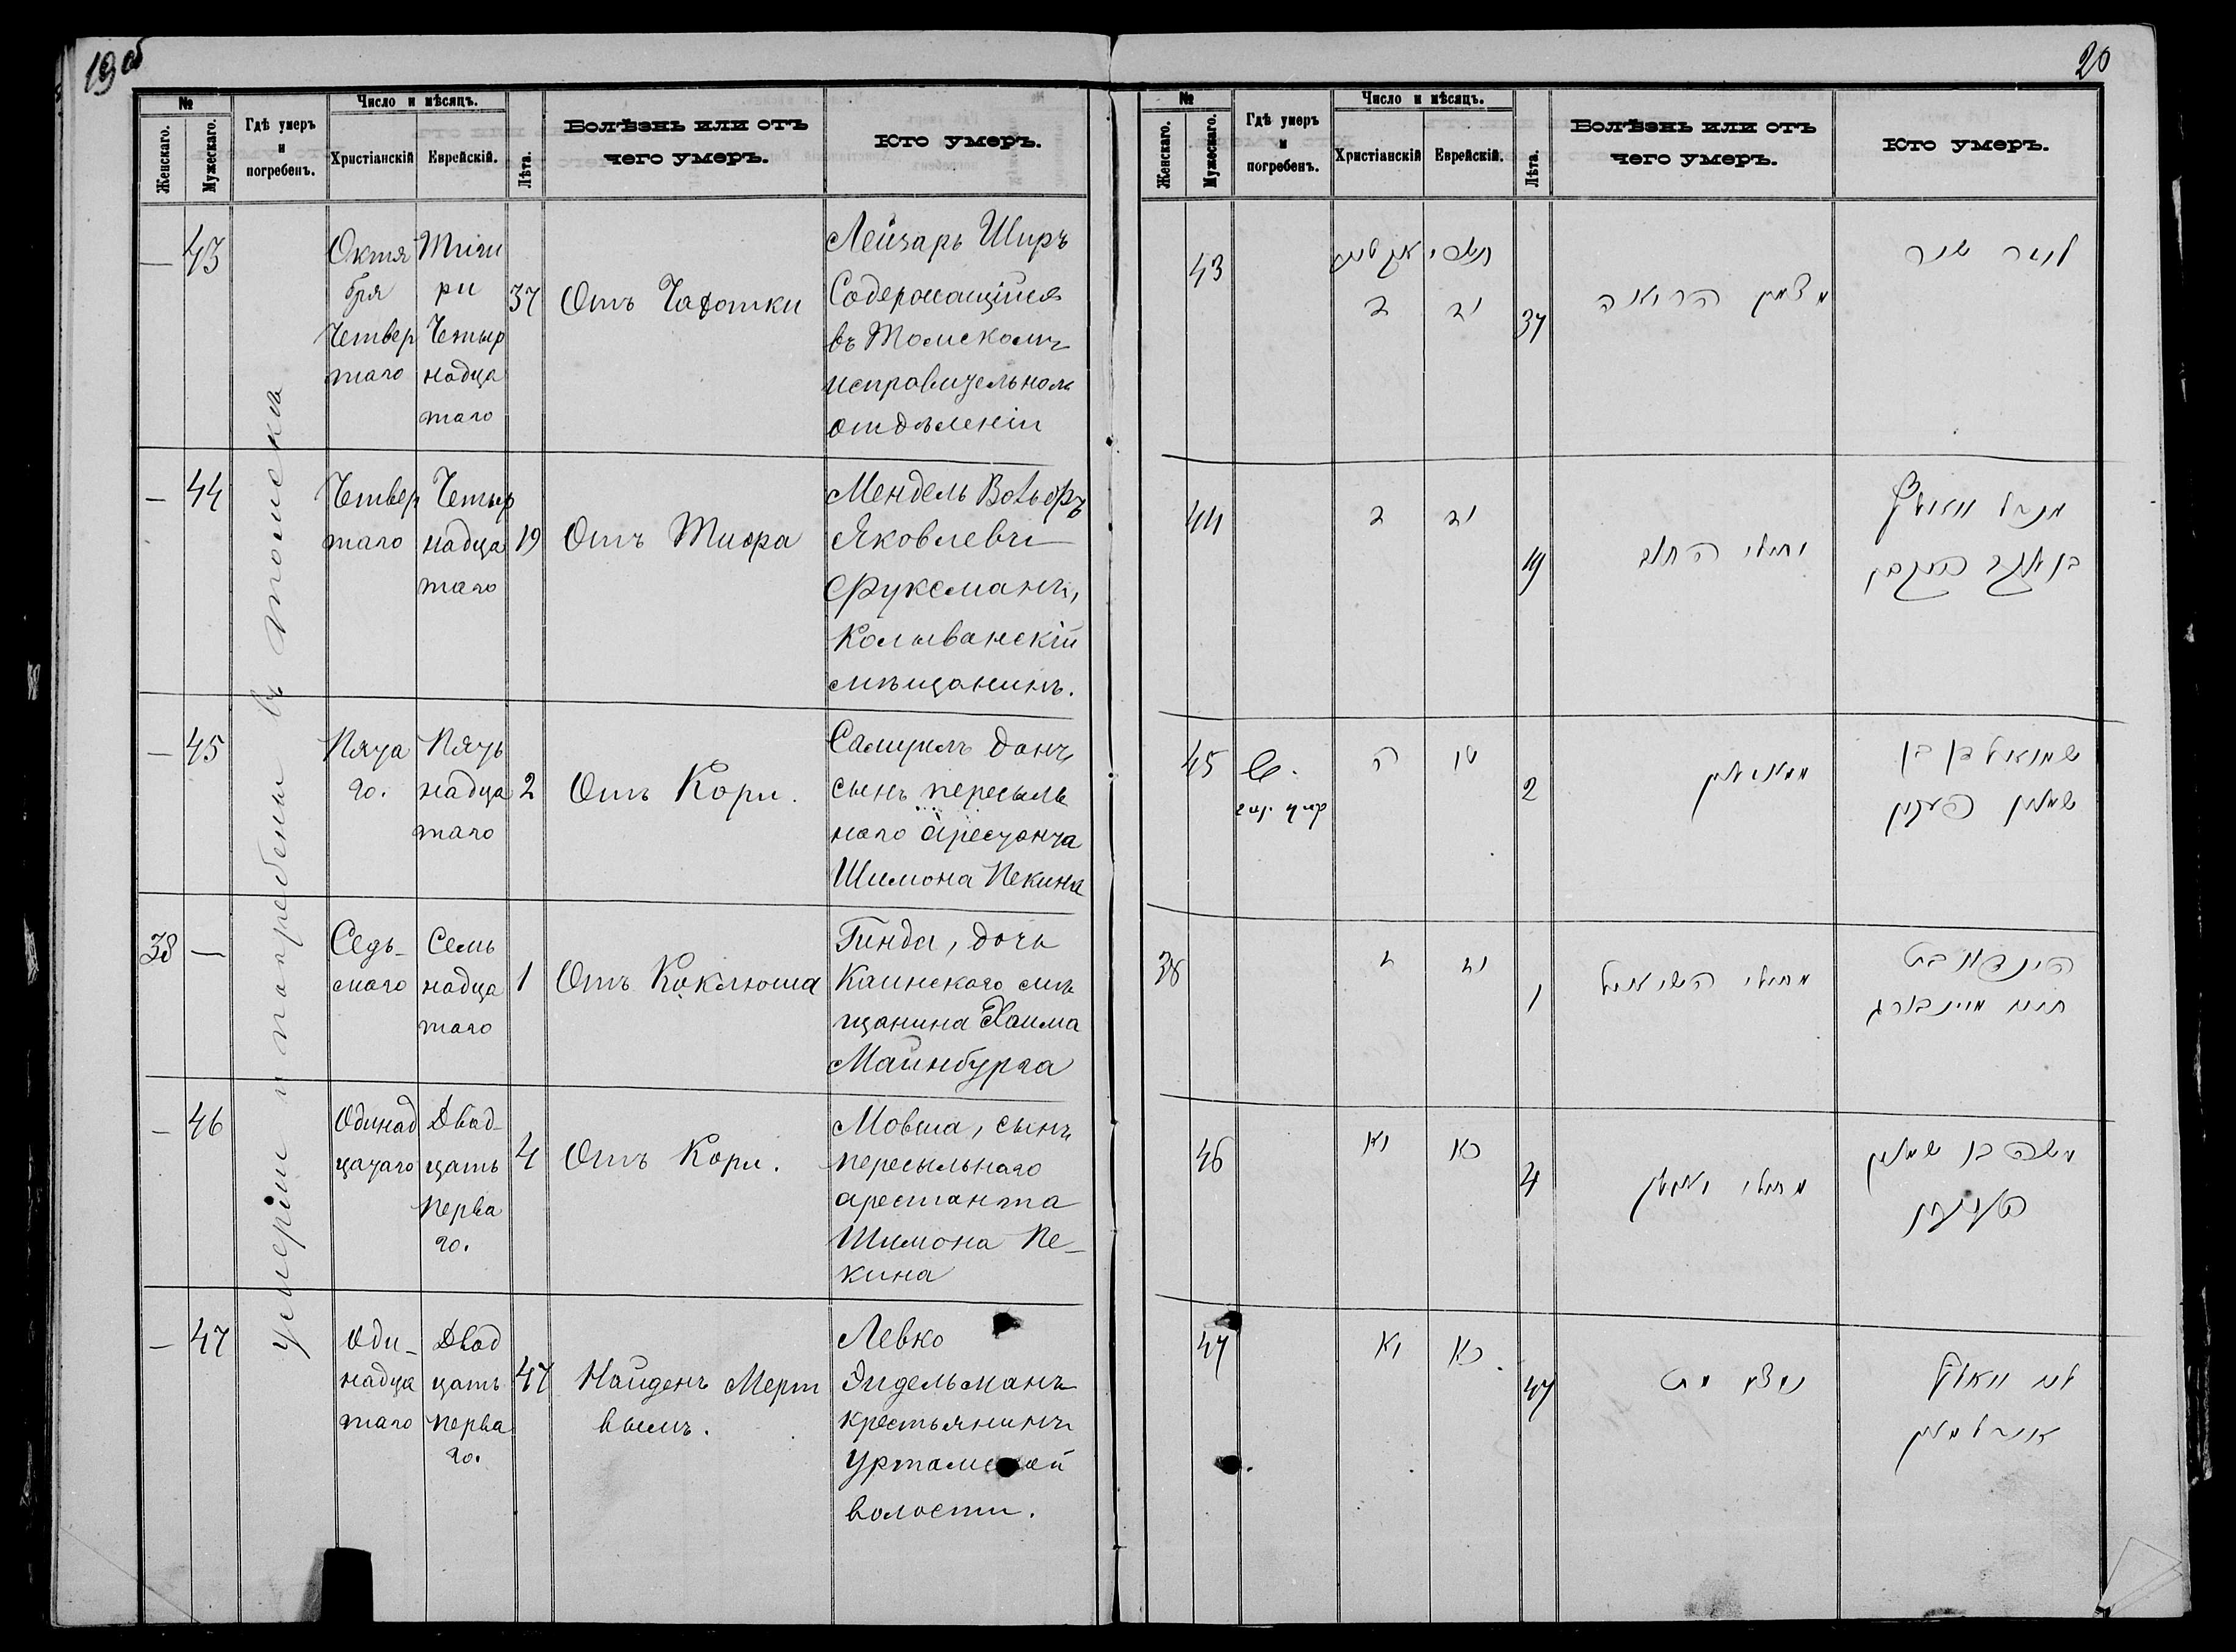 19 об
№
Женскаго.
Мужескаго.
Гдѣ умеръ
и
погребенъ.
Число и мѣсяцъ.
Христіанскій
Еврейскій.
Лѣта.
Болѣзнь или отъ
чего умеръ.
Кто умеръ.
умерли и погребены в Томске
—
43
Октя
бря
Четвер
таго
Тиш
ри
Четыр
надца
таго
37
Отъ Чахотки
Лейзаръ Ширъ
Содержащійся
въ Томскомъ
исправительном
отдѣленіи
—
44
Четвер
таго
Четыр
надца
таго
19
Отъ Тифа
Мендель Вольфъ
Яковлевъ
Фуксманъ,
Колыванскій
мѣщанинъ.
—
45
Пята
го.
Пять
надца
таго
2
Отъ Кори.
Самуилъ
сынъ пересыль
наго арестанта
Шимона Пекина
38
—
Седь-
маго
Семь
надца
таго
1
Отъ Коклюша
Гинда, дочь
Каинскаго мѣ
щанина Хаима
Майнбурга
—
46
Одинад
цатаго
Двад-
цать
перва
го.
4
Отъ Кори.
Мовша, сынъ
пересыльнаго
арестанта
Шимона Пе-
кина
—
47
Оди-
надца
таго
Двад
цать
перва
го.
47
Найденъ Мерт
вымъ.
Левко
Эйдельманъ
крестьянинъ
Уртамской
волости.
20
№
Женскаго.
Мужескаго.
Гдѣ умеръ
и
погребенъ.
Число и мѣсяцъ.
Христіанскій
Еврейскій.
Лѣта.
Болѣзнь или отъ
чего умеръ.
Кто умеръ.
43
ד
יד
37
44
ד
יד
19
מנדל וואלף
45
ה
טו
2
שמואל בן
שמעון פעקין
38
ז
יז
1
הינדא בת
חיים מיינבורג
46
יא
כא
4
משה בן שמעון
פעקין
47
יא
כא
47
נמצא מת
לייב וואלף
אידלמאן